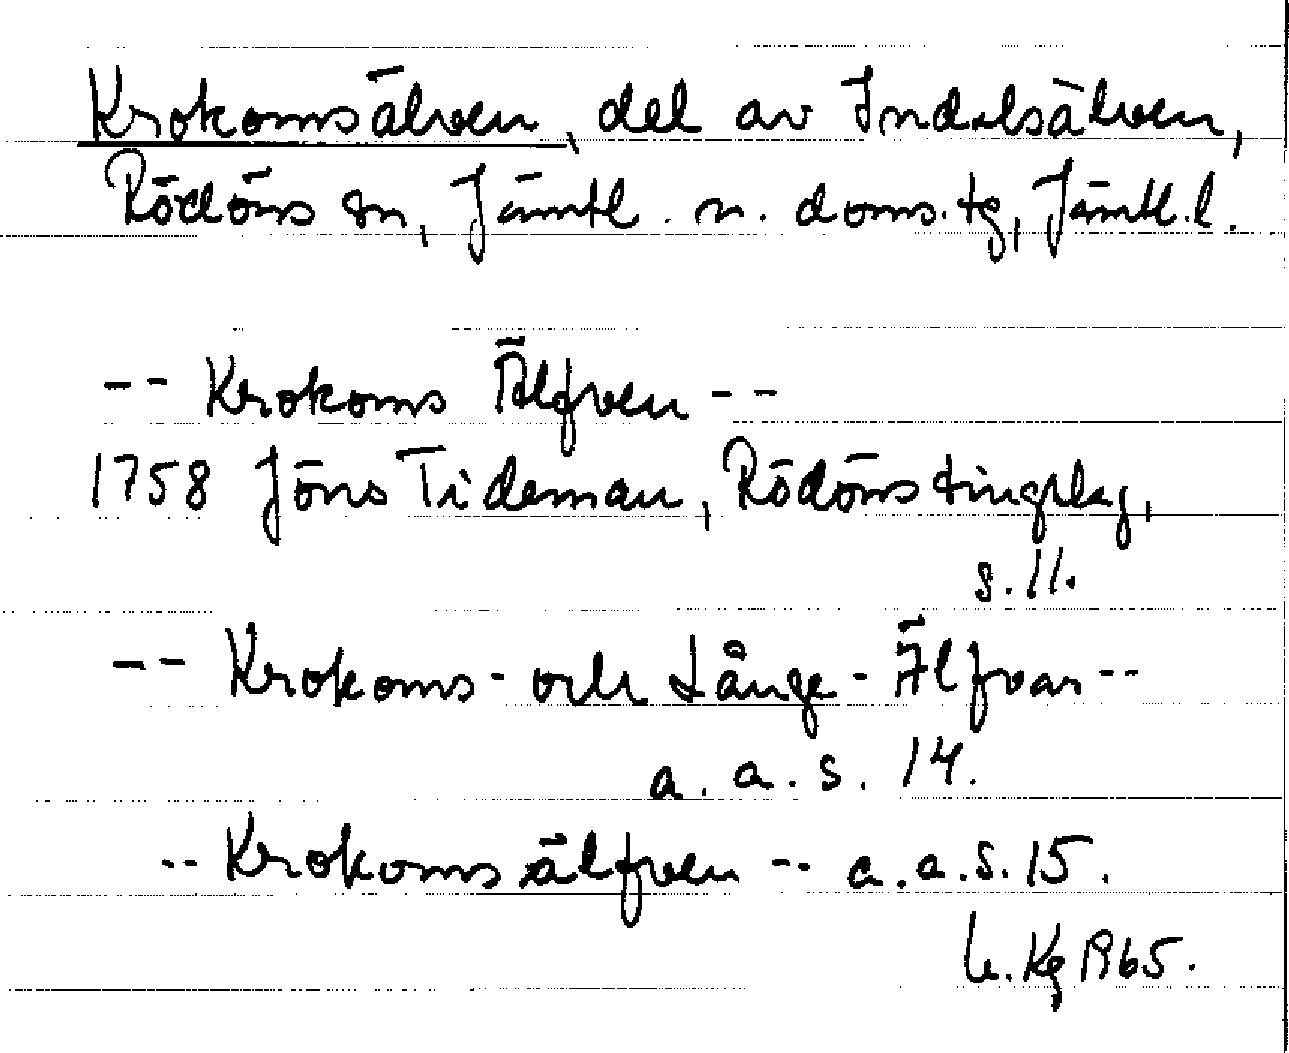 Krokomsälven, del av Indalsälven,
Rödöns sn, Jämtl. n. doms. tg, Jämtl. l.
-- Krokoms Älfven --
1758 Jöns Tideman, Rödöns tingslag,
s. 11.
-- Krokoms- och Långe-Älfvar --
a. a. s. 14.
-- Krokomsälfven -- a. a. s. 15.
Kg 1965.